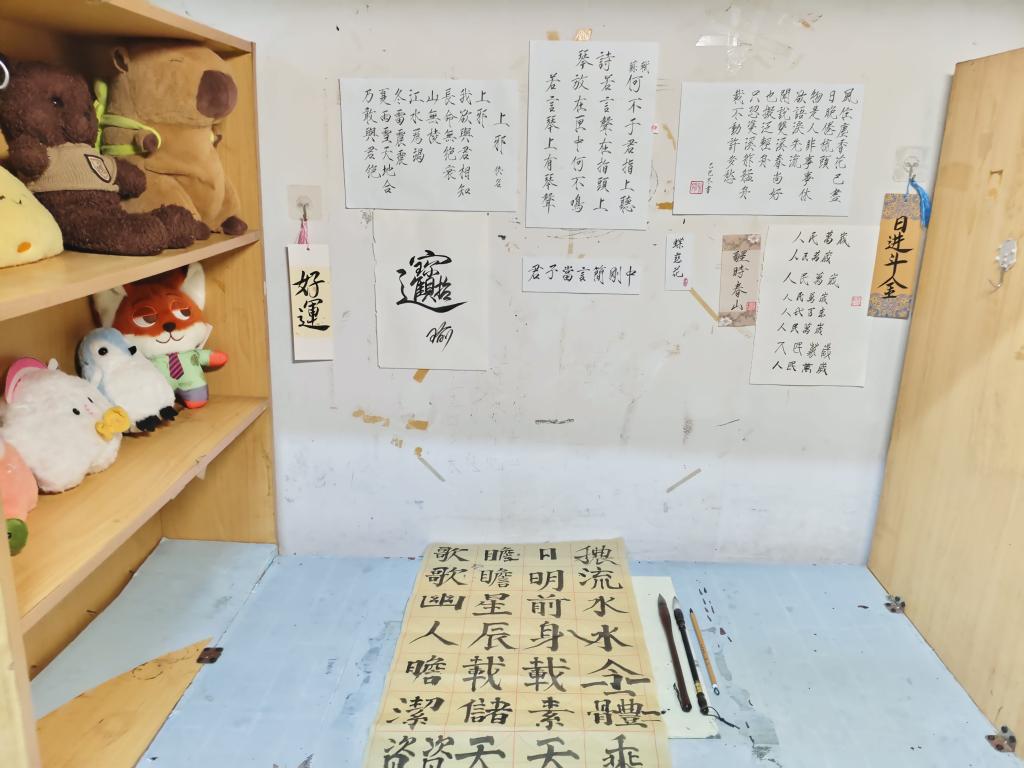 上邪
佚名
上邪
我欲與君相知
長命無絕衰
山無棱
江水爲竭
冬雷震震
夏雨雪天地合
乃敢與君絕
琴詩
蘇軾
若言琴上有琴聲
放在匣中何不鳴
若言聲在指頭上
何不于君指上聽
風住塵香花已盡
日晚倦梳頭
物是人非事事休
欲語淚先流
聞說雙溪春尚好
也擬泛輕舟
只恐雙溪舴艋舟
載不動許多愁
好運
招財進寶
君子當言簡剛中
蝶戀花
醒時春山
人民萬歲
人民萬歲
人民萬歲
人民萬歲
人民萬歲
人民萬歲
人民萬歲
日进斗金
流水水體乘
日明前身載素天
瞻瞻星辰載儲天
歌歌幽人瞻潔資資